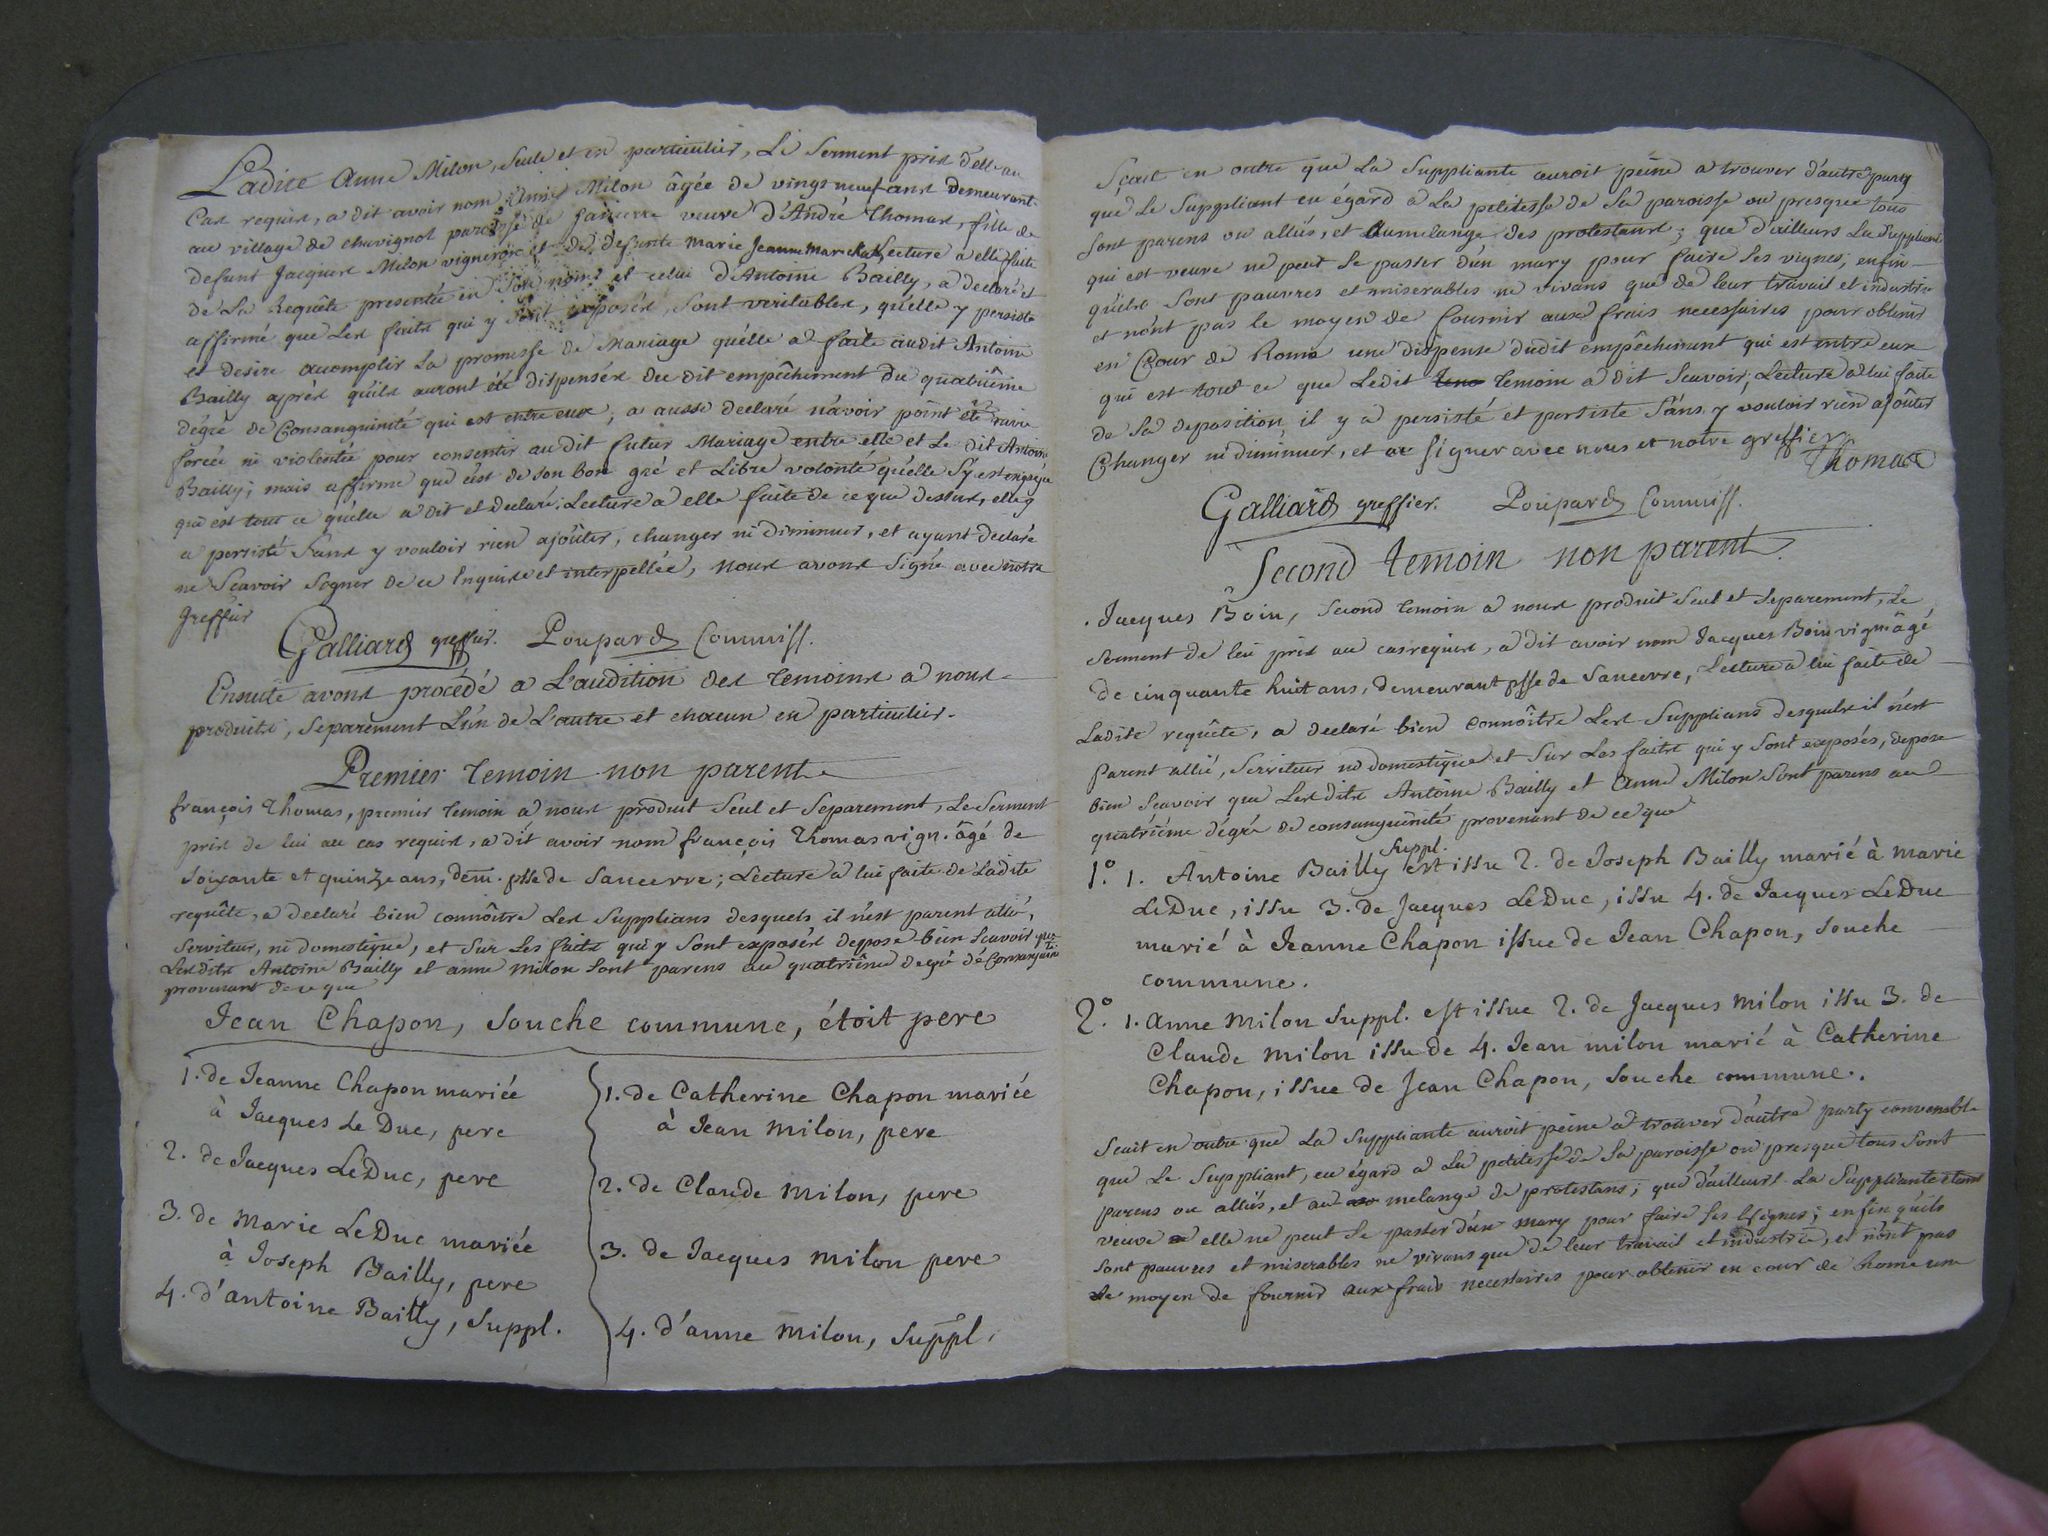 Ladite Anne Milon, Seule et en particulier, Le Serment pris d'elle au
Cas requis, a dit avoir nom Anne Milon âgée de vingt neuf ans demeurant
au village de chavignol paroisse de Sancerre veuve d'André Thomas, fille de
defunt Jacques Milon vigneron et de defunte Marie Jeanne Lecture a elle faite
de La Requête presentée en Son nom et celui d'Antoine Bailly, a declaré et
affirmé que Les faits qui y Sont exposés, Sont veritables, qu'elle y persiste
et desire acomplir La promesse de Mariage qu'elle a faite audit Antoine
Bailly après qu'ils auront été dispensés du dit empêchement du quatrième
dégré de Consanguinité qui est entre eux; a aussi declaré n'avoir point été
forcée ni violentée pour consentir audit futur Mariage entre elle et Le dit Antoine
Bailly; mais affirme que c'est de son bon gré et Libre volonté qu'elle S'y est
qui est tout ce qu'elle a dit et declaré. Lecture a elle faite de ce que dessus, elle y
a persisté Sans y vouloir rien ajoûter, changer ni diminuer, et ayant declaré
ne Scavoir Signer de ce Enquise et interpellée, nous avons Signé avec notre
Greffier
Galliard greffier. Poupard Commiss.
Ensuite avons procédé a L'audition des temoins a nous
produits, Separement L'un de L'autre et chacun en particulier.
Premier temoin non parent
françois Thomas, premier temoin a nous produit Seul et Separement, Le Serment
pris de lui au cas requis, a dit avoir nom françois Thomas vign. âgé de
Soixante et quinze ans, dem. psse de Sancerre; Lecture a lui faite de Ladite
requête, a declaré bien connôitre Les Supplians desquels il n'est parent allié,
Serviteur, ni domestique, et Sur Les faits qui y Sont exposés depose bien Scavoir que
Lesdits Antoine Bailly et anne Milon Sont parens au quatrième degré de Consanguinité
provenant de ce que
Jean Chapon, Souche commune, étoit pere
1. de Jeanne Chapon mariée
à Jacques Le Duc, pere
2. de Jacques LeDuc, pere
3. de Marie LeDuc mariée
à Joseph Bailly, pere
4. d'antoine Bailly, Suppl.
1. de Catherine Chapon mariée
à Jean Milon, pere
2. de Claude Milon, pere
3. de Jacques Milon pere
4. d'anne Milon, Suppl.
Sçait en outre que La Suppliante auroit peine a trouver d'autre party
que Le Suppliant eu égard à La petitesse de Sa paroisse ou presque tous
Sont parens ou alliés, et au melange des protestans; que d'ailleurs La Suppliante
qui est veuve ne peut Se passer d'un mary pour faire Ses vignes; enfin
qu'ils Sont pauvres et miserables ne vivans que de leur travail et industrie
et n'ont pas le moyen de fournir aux frais necessaires pour obtenir
en Cour de Rome une dispense dudit empêchement qui est entre eux
qui est tout ce que Ledit temoin a dit Scavoir; Lecture a lui faite
de Sa deposition, il y a persisté et persiste Sans y vouloir rien ajoûter
Changer ni diminuer, et a Signer avec nous et notre greffier
Thomas
Galliard greffier. Poupard Commiss.
Second temoin non parent
Jacques Boin, Second temoin a nous produit Seul et Separement, Le
Serment de lui pris au cas requis, a dit avoir nom Jacques Boin vign. âgé
de cinquante huit ans, demeurant psse de Sancerre, Lecture a lui faite de
Ladite requête, a declaré bien connôitre Les Supplians desquels il n'est
Parent allié, Serviteur ni domestique et Sur Les faits qui y Sont exposés, depose
bien Scavoir que Lesdits Antoine Bailly et Anne Milon Sont parens au
quatrième dégré de consanguinité provenant de ce que
1.° 1. Antoine Bailly Suppl. est issu 2. de Joseph Bailly marié à Marie
LeDuc, issu 3. de Jacques LeDuc, issu 4. de Jacques LeDuc
marié à Jeanne Chapon issue de Jean Chapon, Souche
commune.
2.° 1. Anne Milon Suppl. est issue 2. de Jacques Milon issu 3. de
Claude Milon issu de 4. Jean Milon marié à Catherine
Chapon, issue de Jean Chapon, Souche commune.
Scait en outre que La Suppliante auroit peine a trouver d'autre party convenable
que Le Suppliant, eu égard a La petitesse de Sa paroisse ou presque tous Sont
parens ou alliés, et au melange de protestans; que d'ailleurs La Suppliante etant
veuve elle ne peut Se passer d'un mary pour faire Ses Vignes; enfin qu'ils
Sont pauvres et miserables ne vivans que de leur travail et industrie, et n'ont pas
Le moyen de fournir aux frais necessaires pour obtenir en cour de Rome une